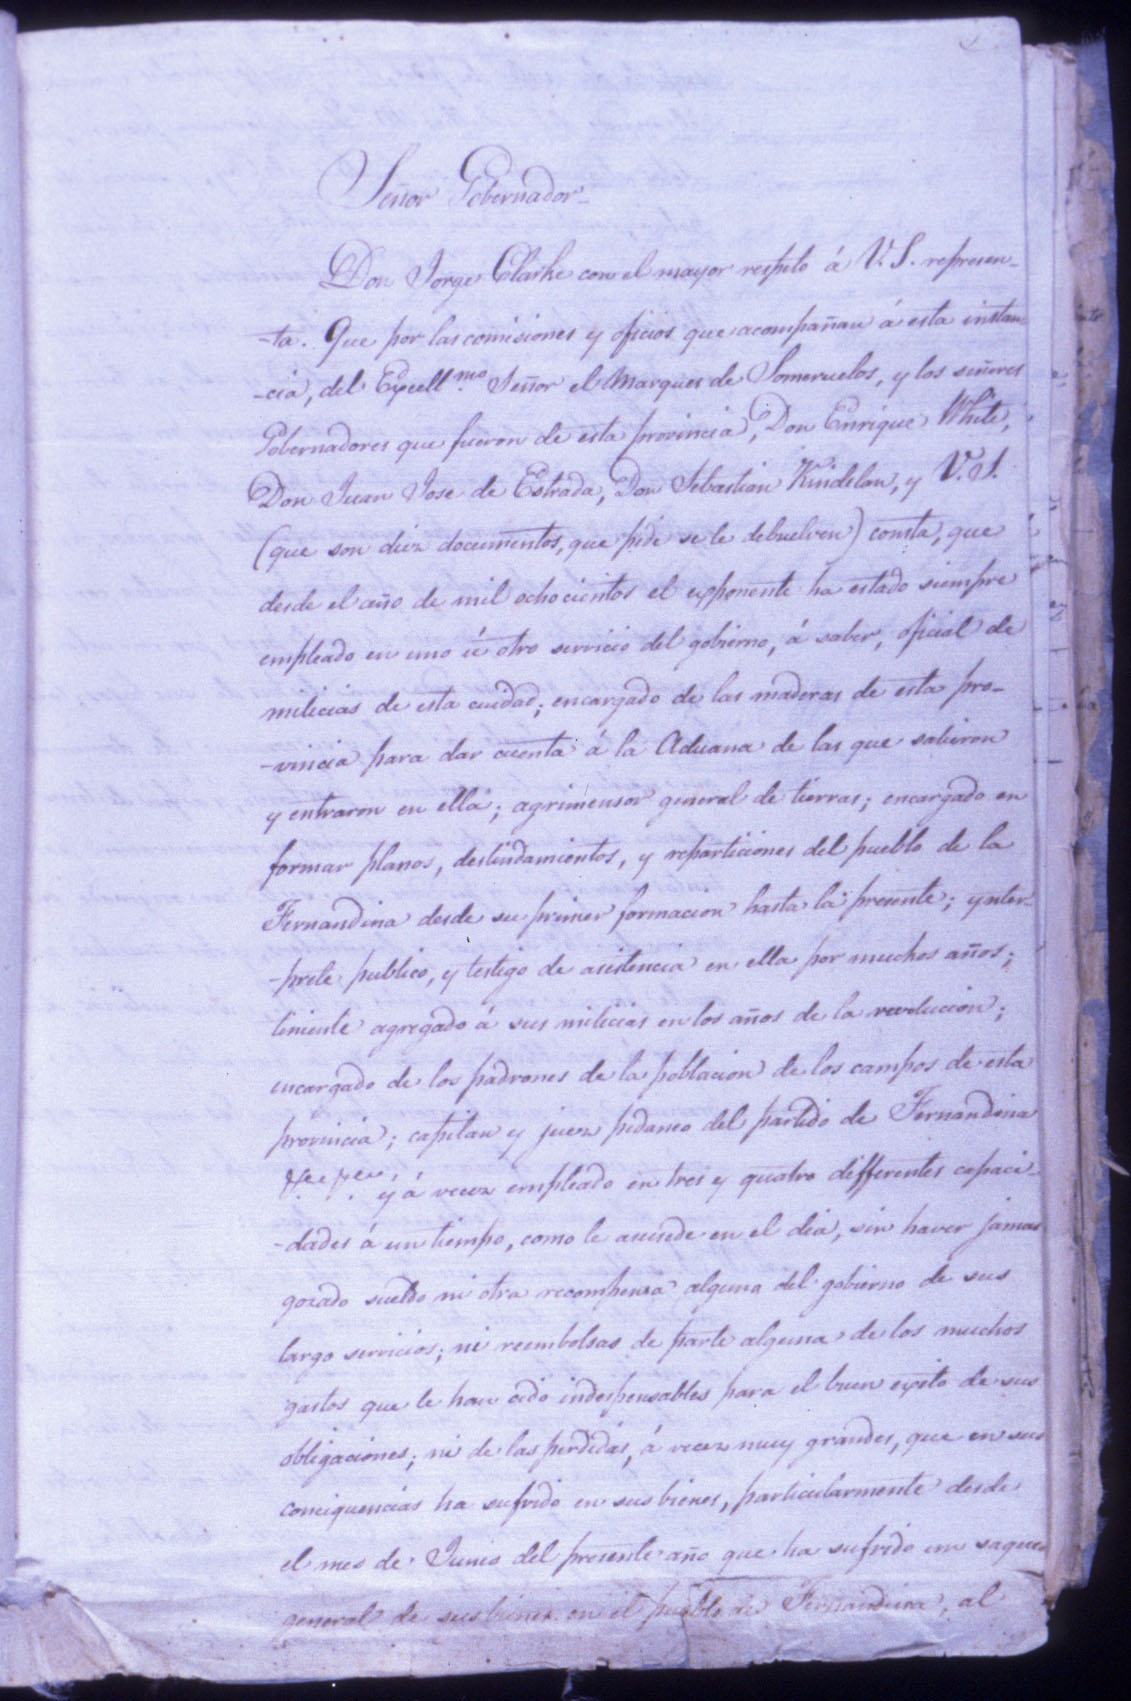 Señor Gobernador
Don Jorge Clarke con el mayor respeto á V. S. represen-
-ta. Que por las comisiones y oficios que acompañan á esta instan-
-cia, del Excell.mo Señor el Marques de Someruelos, y los señores
Gobernadores que fueron de esta provincia, Don Enrique White,
Don Juan Jose de Estrada, Don Sebastian Kindelan, y V. S.
(que son diez documentos, que pide se le debuelven) consta, que
desde el año de mil ochocientos el exponente ha estado siempre
empleado en uno ú otro servicio del gobierno, á saber, oficial de
milicias de esta ciudad; encargado de las maderas de esta pro-
-vincia para dar cuenta á la Aduana de las que salieron
y entraron en ella; agrimensor general de tierras; encargado en
formar planos, deslindamientos, y reparticiones del pueblo de la
Fernandina desde su primer formacion hasta la presente; ynter-
-prete publico, y testigo de asistencia en ella por muchos años;
teniente agregado á sus milicias en los años de la revolucion;
encargado de los padrones de la poblacion de los campos de esta
provincia; capitan y juez pedaneo del partido de Fernandina
y á vecez empleado en tres y quatro differentes capaci-
-dades á un tiempo, como le asusede en el dia, sin haver jamas
gozado sueldo ni otra recompensa alguna del gobierno de sus
largo servicios; ni reembolsas de parte alguna de los muchos
gastos que le han cido indespensables para el buen exito de sus
obligaciones; ni de las perdidas, á vecez muy grandes, que en sus
conciquencias ha sufrido en sus bienes, particularmente desde
el mes de Junio del presente año que ha sufrido un saqueo
general de sus bienes en el pueblo de Fernandina, al